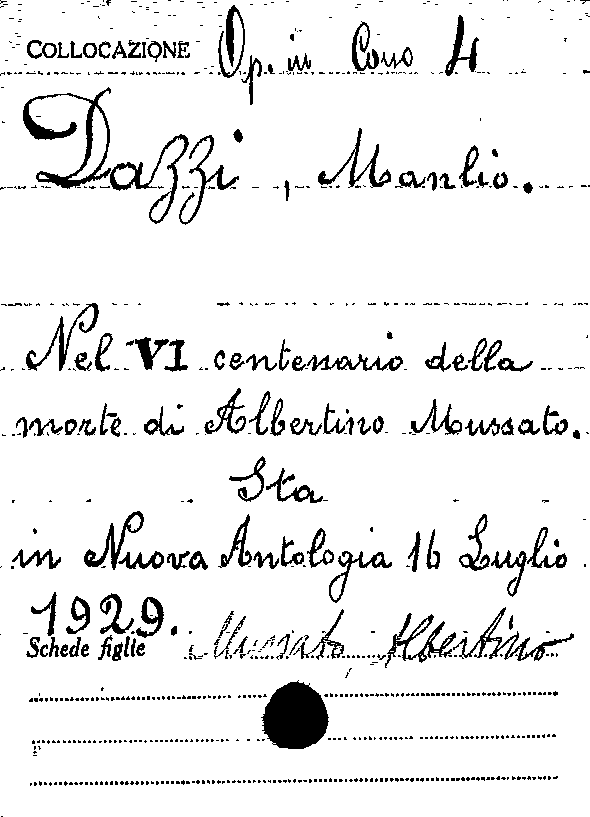 COLLOCAZIONE Op. in Cons 4
Dazzi, Manlio.
Nel VI centenario della
morte di Albertino Mussato.
Sta
in Nuova Antologia 16 Luglio
1929.
Schede figlie Mussato, Albertino